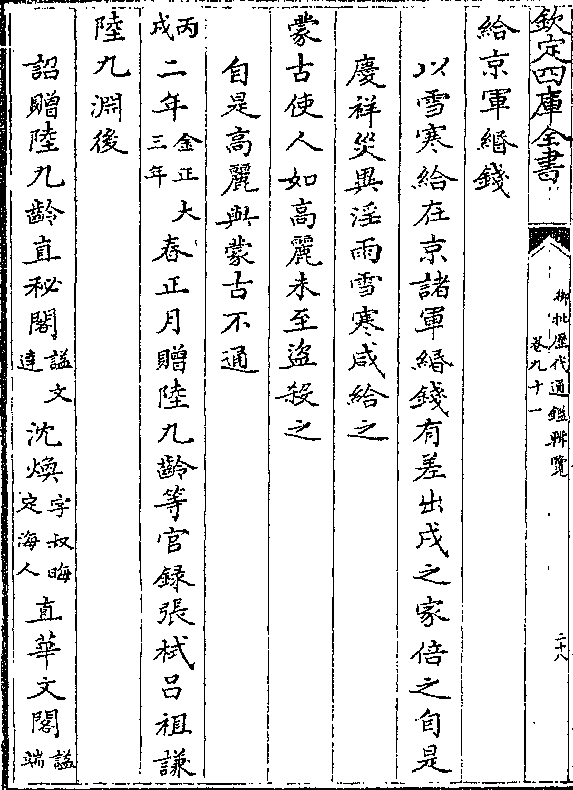 欽定四庫全書
御批歷代通鑑輯覽
卷九十一
二十八
給京軍緡錢
以雪寒給在京諸軍緡錢有差出戍之家倍之自是
慶祥災異淫雨雪寒咸給之
蒙古使人如高麗未至盜殺之
自是高麗與蒙古不通
丙戌二年金正大三年春正月贈陸九齡等官録張栻呂祖謙
陸九淵後
詔贈陸九齡直秘閣諡文達沈煥字叔晦定海人直華文閣諡端